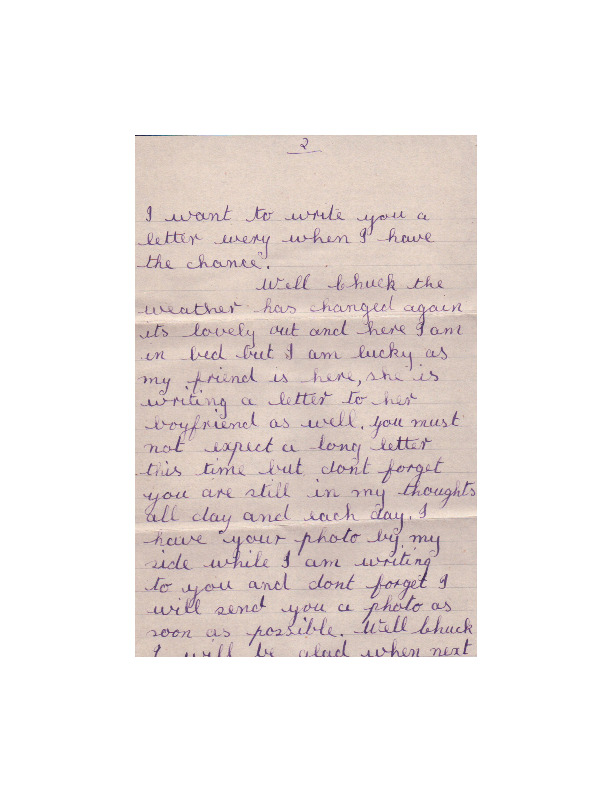 2
I want to write you a
letter every when I have
the chance.
Well Chuck the
weather has changed again
its lovely out and here I am
in bed but I am lucky as
my friend is here, she is
writing a letter to her
boyfriend as well. you must
not expect a long letter
this time but dont forget
you are still in my thoughts
all day and each day. I
have your photo by my
side while I am writing
to you and dont forget I
will send you a photo as
soon as possible. Well Chuck
I will be glad when next